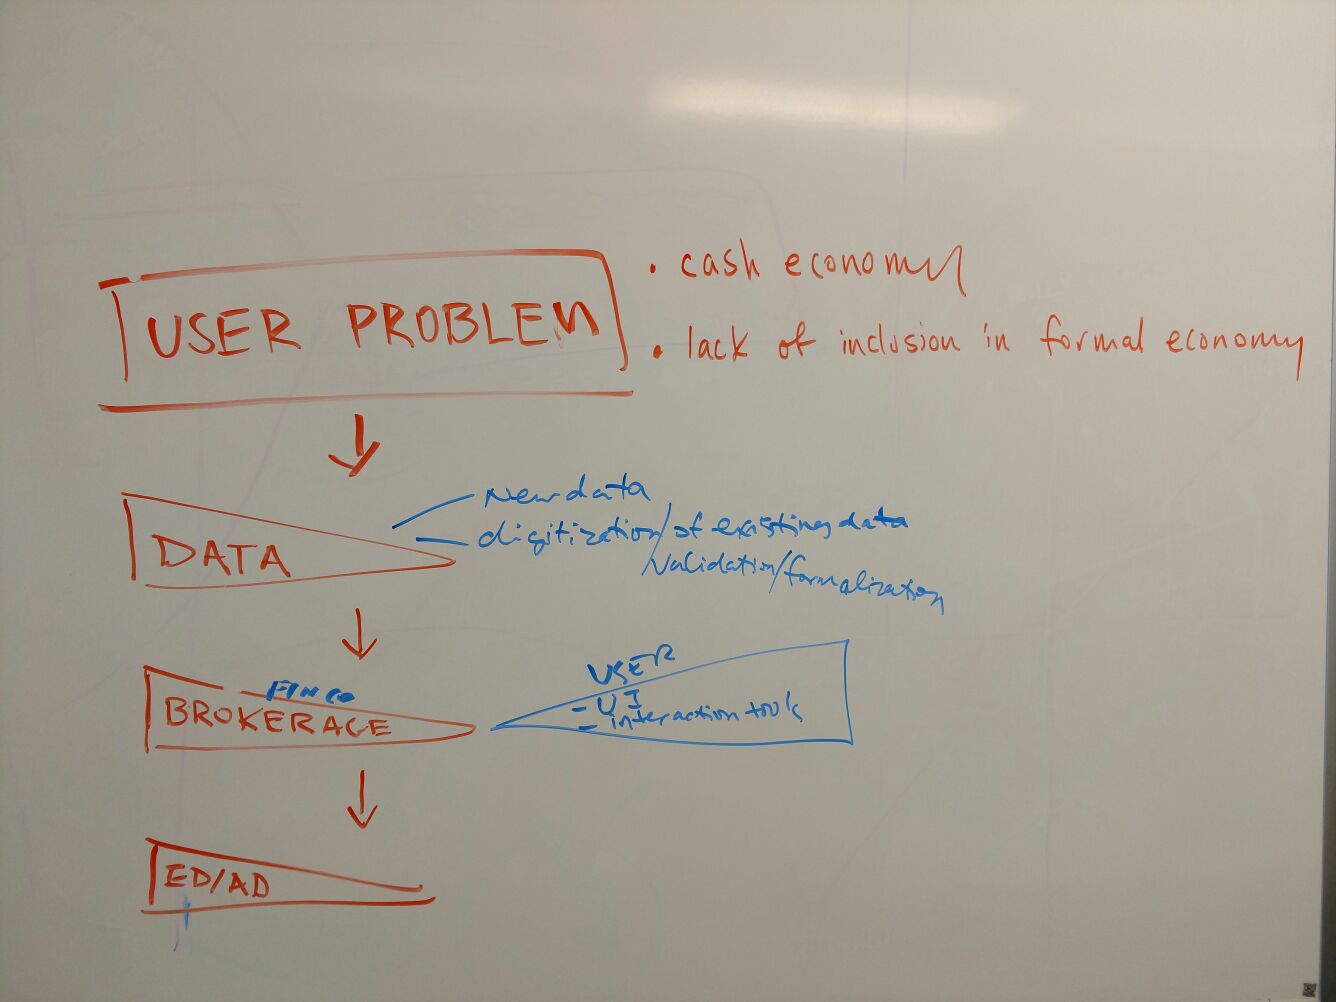 USER PROBLEM
• cash economy
• lack of inclusion in formal economy
New data
digitization/of existing data
Validation/formalization
DATA
FINCO
BROKERAGE
USER
- UI
- interaction tools
ED/AD